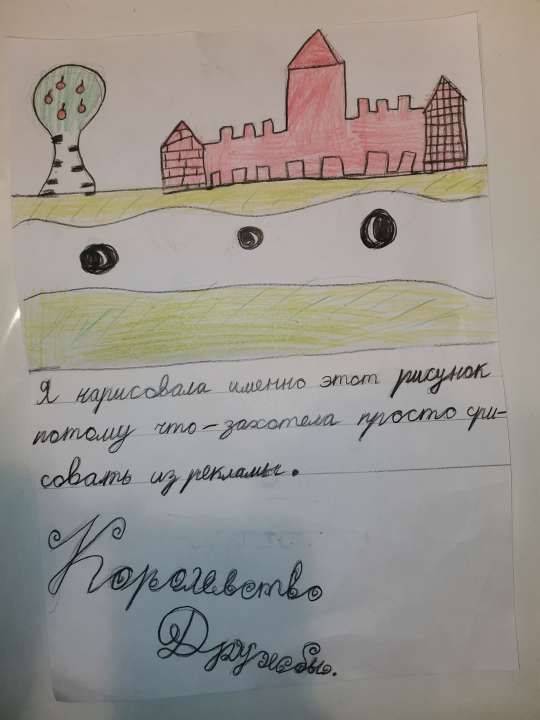 Я нарисовала именно этот рисунок
потому что-захотела просто сри-
совать из рекламы.
Королевство
Дружбы.